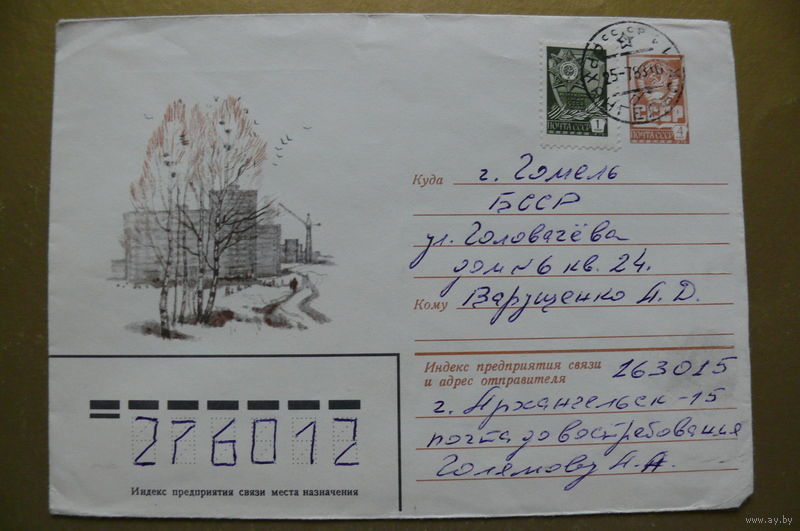 ПОЧТА СССР 1
АРХАНГЕЛЬСК
25-7 83
СССР
ПОЧТА СССР 4
Куда г. Гомель
БССР
ул. Головачёва
дом 6 кв. 24.
Кому Варущенко А. Д.
Индекс предприятия связи
и адрес отправителя 163015
г. Архангельск-15
почта до востребования
Голямову А. А.
276012
Индекс предприятия связи места назначения
www.ay.by